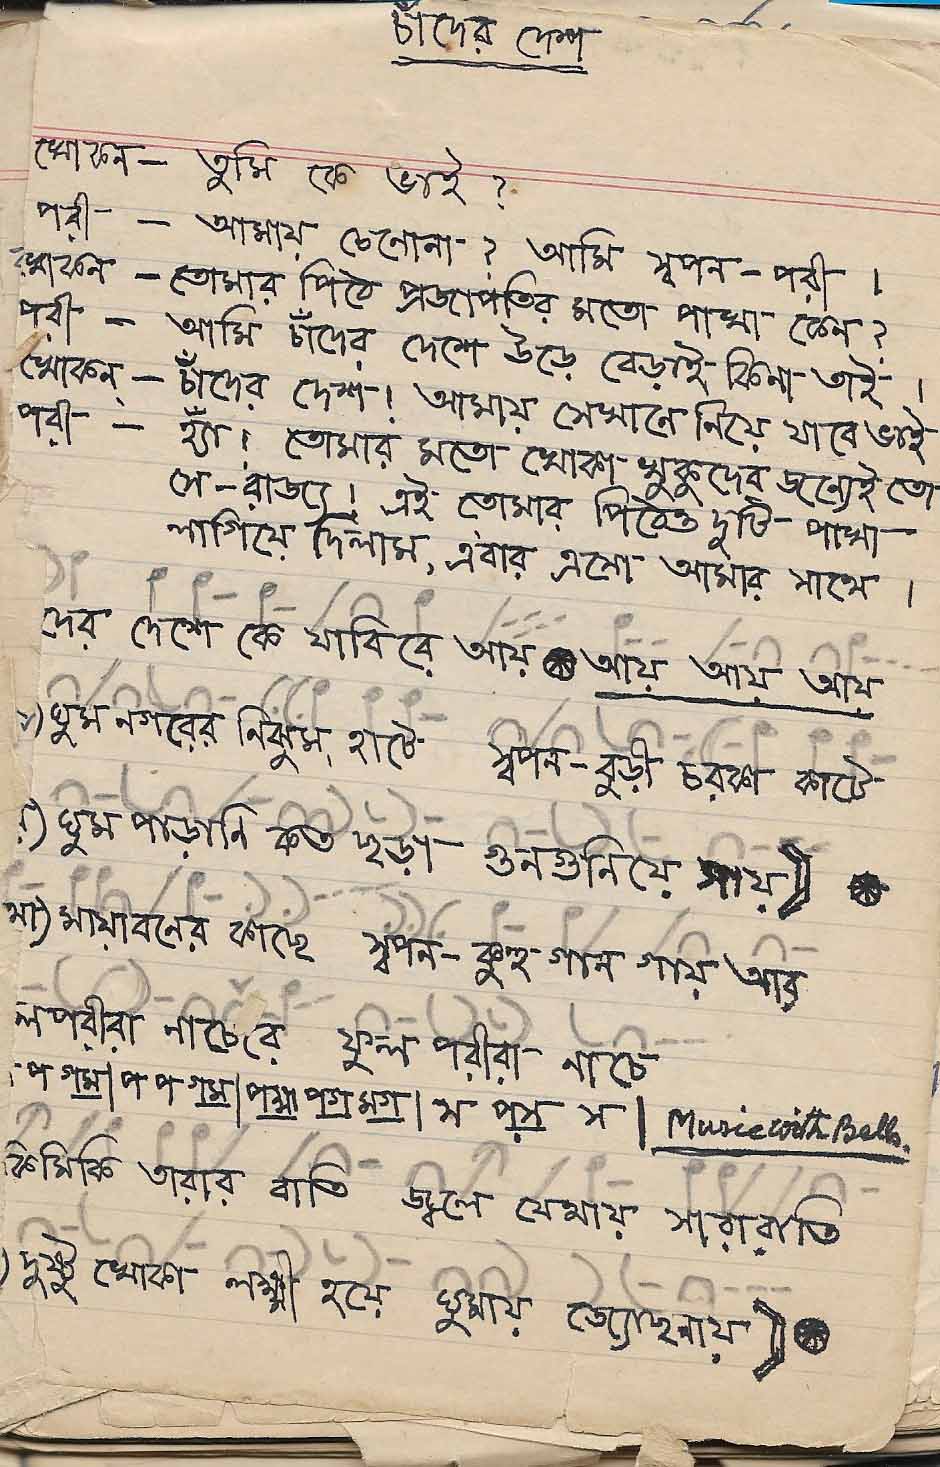 চাঁদের দেশ
খোকন - তুমি কে ভাই ?
পরী - আমায় চেনোনা ? আমি স্বপন - পরী ।
খোকন - তোমার পিঠে প্রজাপতির মতো পাখা কেন ?
পরী - আমি চাঁদের দেশে উড়ে বেড়াই কিনা তাই ।
খোকন - চাঁদের দেশ ! আমায় সেখানে নিয়ে যাবে ভাই
পরী - হ্যাঁ ! তোমার মতো খোকা খুকুদের জন্যেই তো
সে - রাজ্য ! এই তোমার পিঠেও দুটি পাখা
লাগিয়ে দিলাম, এবার এসো আমার সাথে ।
দের দেশে কে যাবি রে আয় আয় আয় আয়
ঘুম নগরের নিঝুম হাটে স্বপন - বুড়ী চরকা কাটে
ঘুম পাড়ানি কত ছড়া গুনগুনিয়ে গায়
মায়াবনের কাছে স্বপন - কুহু গান গায় আর
লপরীরা নাচেরে ফুল পরীরা নাচে
প গম | প প গম | পগ মগ | স প | Music with Bells.
কিমিকি তারার বাতি জ্বলে যেথায় সারারাতি
দুষ্টু খোকা লক্ষ্মী হয়ে ঘুমায় জ্যোছনায়